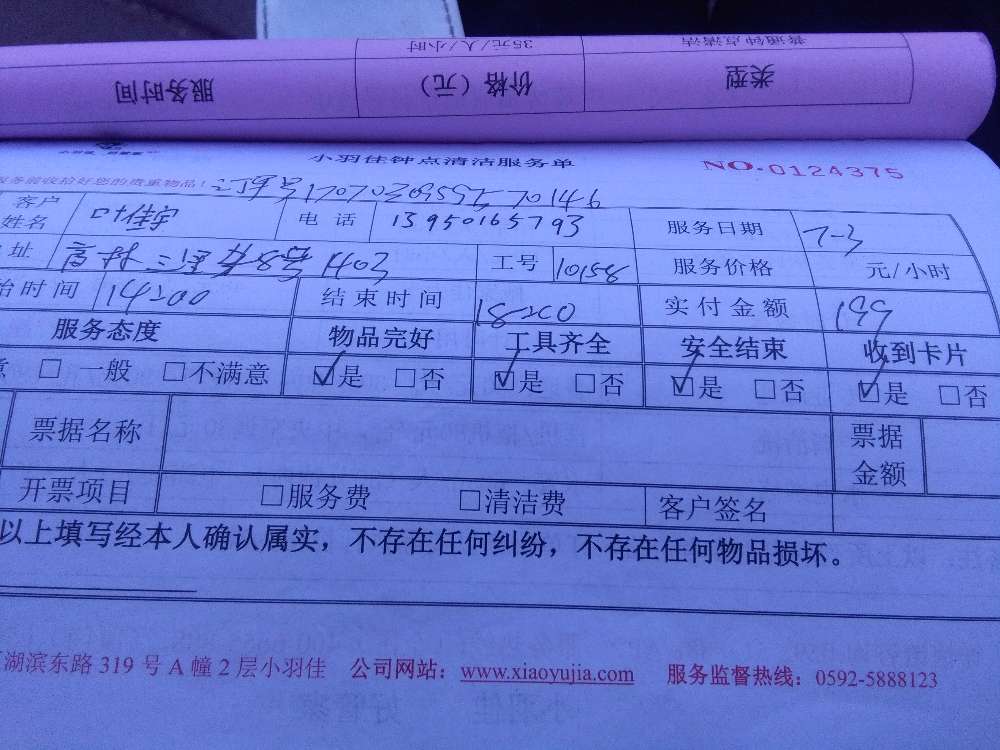 普通钟点清洁 35元/人/小时
类型 价格（元） 服务时间
小羽佳钟点清洁服务单 NO.0124375
服务前收拾好您的贵重物品！订单号
客户姓名 电话 13950165793 服务日期 7-3
址 1403 工号 10158 服务价格 元/小时
始时间 14:00 结束时间 18:00 实付金额 199
服务态度 物品完好 工具齐全 安全结束 收到卡片
意 □ 一般 □不满意 ☑是 □否 ☑是 □否 ☑是 □否 ☑是 □否
票据名称 票据金额
开票项目 □服务费 □清洁费 客户签名
以上填写经本人确认属实，不存在任何纠纷，不存在任何物品损坏。
湖滨东路 319 号 A 幢 2 层小羽佳 公司网站：www.xiaoyujia.com 服务监督热线：0592-5888123